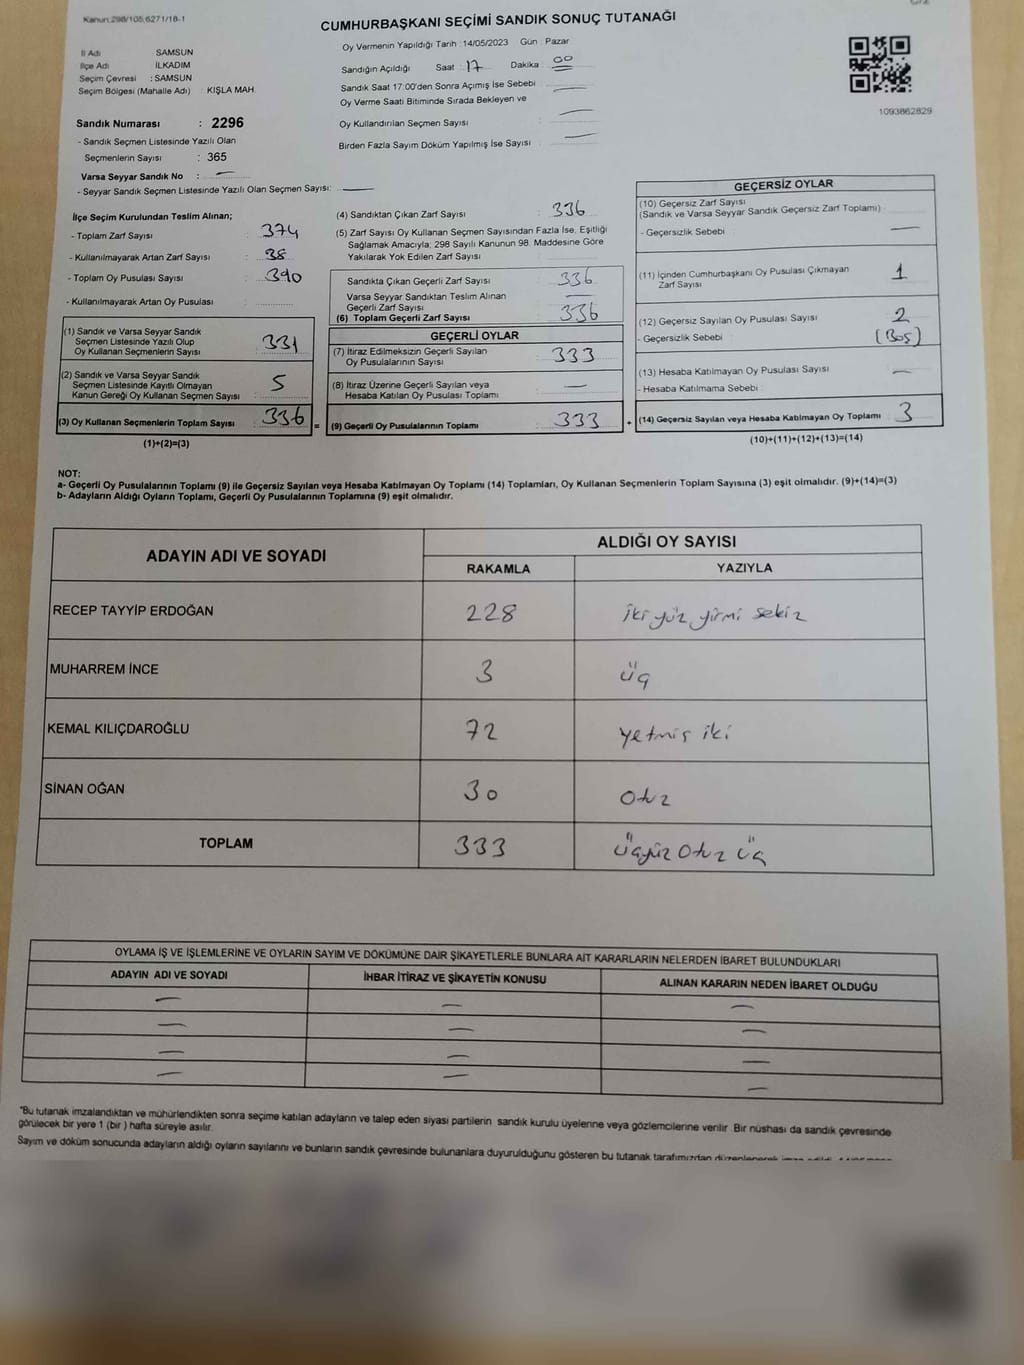 Kanun:298/105,6271/18-1
CUMHURBAŞKANI SEÇİMİ SANDIK SONUÇ TUTANAĞI
İl Adı SAMSUN
İlçe Adı İLKADIM
Seçim Çevresi : SAMSUN
Seçim Bölgesi (Mahalle Adı) : KIŞLA MAH.
Sandık Numarası : 2296
- Sandık Seçmen Listesinde Yazılı Olan
Seçmenlerin Sayısı : 365
Varsa Seyyar Sandık No : —
- Seyyar Sandık Seçmen Listesinde Yazılı Olan Seçmen Sayısı: —
Oy Vermenin Yapıldığı Tarih : 14/05/2023 Gün : Pazar
Sandığın Açıldığı Saat : 17 Dakika : 00
Sandık Saat 17:00'den Sonra Açımış İse Sebebi : —
Oy Verme Saati Bitiminde Sırada Bekleyen ve
Oy Kullandırılan Seçmen Sayısı : —
Birden Fazla Sayım Döküm Yapılmış İse Sayısı : —
1093862829
İlçe Seçim Kurulundan Teslim Alınan;
- Toplam Zarf Sayısı : 374
- Kullanılmayarak Artan Zarf Sayısı : 38
- Toplam Oy Pusulası Sayısı : 390
- Kullanılmayarak Artan Oy Pusulası :
(1) Sandık ve Varsa Seyyar Sandık
Seçmen Listesinde Yazılı Olup
Oy Kullanan Seçmenlerin Sayısı : 331
(2) Sandık ve Varsa Seyyar Sandık
Seçmen Listesinde Kayıtlı Olmayan
Kanun Gereği Oy Kullanan Seçmen Sayısı : 5
(3) Oy Kullanan Seçmenlerin Toplam Sayısı : 336 =
(1)+(2)=(3)
(4) Sandıktan Çıkan Zarf Sayısı : 336
(5) Zarf Sayısı Oy Kullanan Seçmen Sayısından Fazla İse, Eşitliği
Sağlamak Amacıyla; 298 Sayılı Kanunun 98. Maddesine Göre
Yakılarak Yok Edilen Zarf Sayısı :
Sandıkta Çıkan Geçerli Zarf Sayısı : 336
Varsa Seyyar Sandıktan Teslim Alınan
Geçerli Zarf Sayısı : —
(6) Toplam Geçerli Zarf Sayısı : 336
GEÇERLİ OYLAR
(7) İtiraz Edilmeksizin Geçerli Sayılan
Oy Pusulalarının Sayısı : 333
(8) İtiraz Üzerine Geçerli Sayılan veya
Hesaba Katılan Oy Pusulası Toplamı : —
(9) Geçerli Oy Pusulalarının Toplamı : 333 +
GEÇERSİZ OYLAR
(10) Geçersiz Zarf Sayısı
(Sandık ve Varsa Seyyar Sandık Geçersiz Zarf Toplamı) :
- Geçersizlik Sebebi : —
(11) İçinden Cumhurbaşkanı Oy Pusulası Çıkmayan
Zarf Sayısı : 1
(12) Geçersiz Sayılan Oy Pusulası Sayısı : 2
- Geçersizlik Sebebi : (Boş)
(13) Hesaba Katılmayan Oy Pusulası Sayısı : —
- Hesaba Katılmama Sebebi :
(14) Geçersiz Sayılan veya Hesaba Katılmayan Oy Toplamı : 3
(10)+(11)+(12)+(13)=(14)
NOT:
a- Geçerli Oy Pusulalarının Toplamı (9) ile Geçersiz Sayılan veya Hesaba Katılmayan Oy Toplamı (14) Toplamları, Oy Kullanan Seçmenlerin Toplam Sayısına (3) eşit olmalıdır. (9)+(14)=(3)
b- Adayların Aldığı Oyların Toplamı, Geçerli Oy Pusulalarının Toplamına (9) eşit olmalıdır.
ADAYIN ADI VE SOYADI ALDIĞI OY SAYISI
RAKAMLA YAZIYLA
RECEP TAYYİP ERDOĞAN 228 iki yüz yirmi sekiz
MUHARREM İNCE 3 üç
KEMAL KILIÇDAROĞLU 72 yetmiş iki
SİNAN OĞAN 30 otuz
TOPLAM 333 üçyüz otuz üç
OYLAMA İŞ VE İŞLEMLERİNE VE OYLARIN SAYIM VE DÖKÜMÜNE DAİR ŞİKAYETLERLE BUNLARA AİT KARARLARIN NELERDEN İBARET BULUNDUKLARI
ADAYIN ADI VE SOYADI İHBAR İTİRAZ VE ŞİKAYETİN KONUSU ALINAN KARARIN NEDEN İBARET OLDUĞU
— — —
— — —
— — —
— — —
"Bu tutanak imzalandıktan ve mühürlendikten sonra seçime katılan adayların ve talep eden siyasi partilerin sandık kurulu üyelerine veya gözlemcilerine verilir. Bir nüshası da sandık çevresinde
görülecek bir yere 1 (bir ) hafta süreyle asılır.
Sayım ve döküm sonucunda adayların aldığı oyların sayılarını ve bunların sandık çevresinde bulunanlara duyurulduğunu gösteren bu tutanak tarafımızdan düzenlenerek